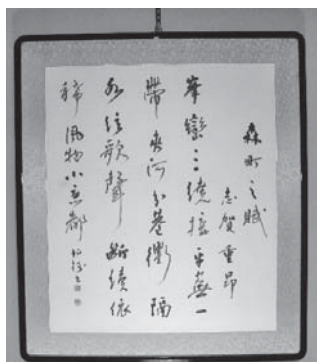 森町之賦
志賀重昂
峯巒三繞擁平蕪一
帶來河分巷衢隔
水絃歌聲斷續依
稀風物小京都